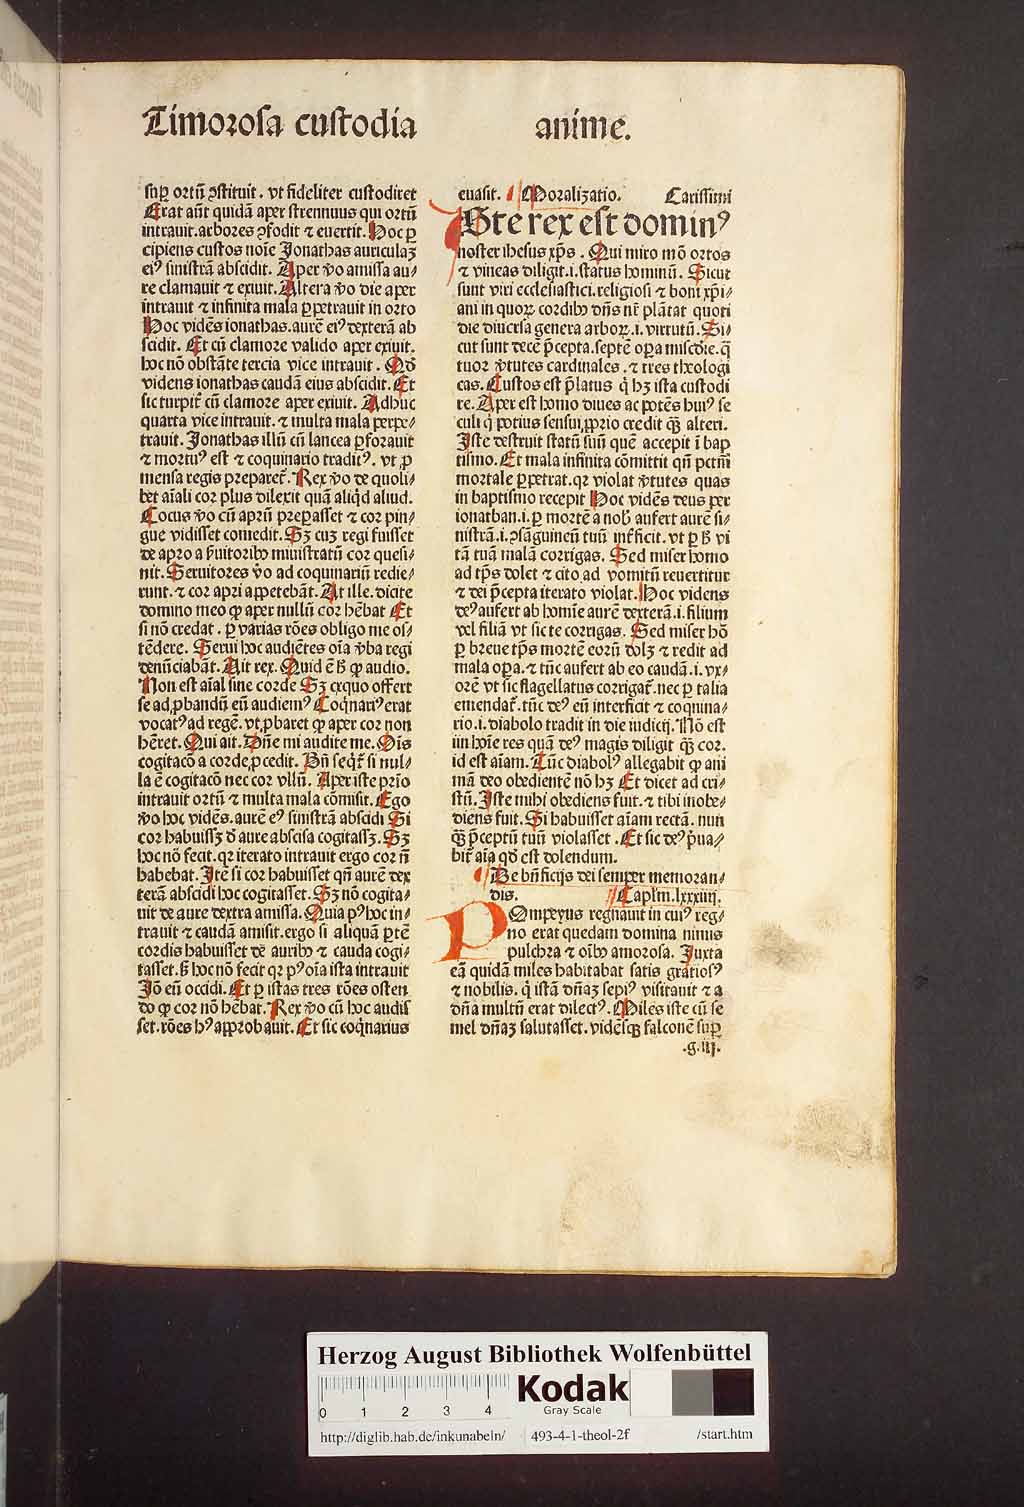 Timorosa custodia anime.
sup ortū ꝯstituit. vt fideliter custodiret
Erat aūt quidā aper strennuus qui ortū
intrauit. arbores ꝯfodit ⁊ euertit. Hoc ꝑ
cipiens custos noīe Jonathas auriculaꝫ
eiꝰ sinistrā abscidit. Aper v̄o amissa au⸗
re clamauit ⁊ exiuit. Altera v̄o die aper
intrauit ⁊ infinita mala ꝑpetrauit in orto
Hoc vidēs ionathas. aurē eiꝰ dexterā ab
scidit. Et cū clamore valido aper exiuit.
hoc nō obstāte tercia vice intrauit. Qd̄
videns ionathas caudā eius abscidit. Et
sic turpit̄ cū clamore aper exiuit. Adhuc
quarta vice intrauit. ⁊ multa mala perpe⸗
trauit. Jonathas illū cū lancea ꝑforauit
⁊ mortuꝰ est ⁊ coquinario traditꝰ. vt ꝓ
mensa regis preparet̄. Rex v̄o de quoli⸗
bet aīali cor plus dilexit quā aliqd aliud.
Cocus v̄o cū aprū preparasset ⁊ cor pin⸗
gue vidisset comedit. Sꝫ cuꝫ regi fuisset
de apro a ẜuitoribꝰ miuistratū cor quesi⸗
nit. Seruitores v̄o ad coquinariū redie⸗
runt. ⁊ cor apri appetebāt. At ille. dicite
domino meo ꝙ aper nullū cor hēbat Et
si nō credat. ꝑ varias rōes obligo me os⸗
tēdere. Serui hoc audiētes oīa v̄ba regi
denūciabāt. Ait rex. Quid ē ꝙ audio.
Non est aīal sine corde Sꝫ exquo offert
se ad ꝓbandū eū audiemꝰ Coqnariꝰ erat
vocatꝰ ad regē. vt ꝓbaret ꝙ aper cor non
hēret. Qui ait. Dn̄e mi audite me. Oīs
cogitacō a corde ꝓcedit. Bn̄ seqt̄ si nul⸗
la ē cogitacō nec cor vllū. Aper iste prīo
intrauit ortū ⁊ multa mala cōmisit. Ego
v̄o hoc vidēs. aurē eꝰ sinistrā abscidi Si
cor habuissꝫ d̄ aure abscisa cogitassꝫ. Sꝫ
hoc nō fecit. qꝛ iterato intrauit ergo cor n̄
habebat. Jtē si cor habuisset qn̄ aurē dex
terā abscidi hoc cogitasset. Sꝫ nō cogita⸗
uit de aure dextra amissa. Quia pꝰ hoc in⸗
trauit ⁊ caudā amisit. ergo si aliquā ꝑtē
cordis habuisset dē auribꝰ ⁊ cauda cogi⸗
tasset. ẜ hoc nō fecit qꝛ pꝰ oīa ista intrauit
Jō eū occidi. Et ꝑ istas tres rōes osten
do ꝙ cor nō hēbat. Rex v̄o cū hoc audis
set. rōes hꝰ approbauit. Et sic coqnarius
euasit. Moralizatio. Carissimi
Iste rex est dominꝰ
noster ihesus xp̄s. Qui miro mō ortos
⁊ vineas diligit .i. status hominū. Sicut
sunt viri ecclesiastici. religiosi ⁊ boni xp̄i⸗
ani in quoꝝ cordibꝰ dn̄s nr̄ plātat quoti
die diuersa genera arboꝝ .i. virtutū. Si⸗
cut sunt decē p̄cepta. septē oꝑa miscd̄ie. q̄
tuor v̄tutes cardinales. ⁊ tres theologi
cas. Custos est p̄latus q̇ hꝫ ista custodi
re. Aper est homo diues ac potēs huiꝰ se
culi q̇ potius sensui ꝓprio credit qꝫ̄ alteri.
Jste destruit statū suū quē accepit ī bap
tismo. Et mala infinita cōmittit qn̄ pctm̄
mortale ꝑpetrat. qꝛ violat v̄tutes quas
in baptismo recepit Hoc vidēs deus per
ionathan .i. ꝑ mortē a nob̄ aufert aurē si⸗
nistrā .i. ꝯsāguineū tuū inſficit. vt ꝑ ẜ vi
tā tuā malā corrigas. Sed miser homo
ad tp̄s dolet ⁊ cito ad vomitū reuertitur
⁊ dei p̄cepta iterato violat. Hoc videns
deꝰ aufert ab homīe aurē dexterā .i. filium
vel filiā vt sic te corrigas. Sed miser hō
ꝑ breue tp̄s mortē eorū dolꝫ ⁊ redit ad
mala oꝑa. ⁊ tūc aufert ab eo caudā .i. vx⸗
orē vt sic flagellatus corrigat̄. nec ꝑ talia
emendat̄. tūc deꝰ eū interficit ⁊ coquina⸗
rio .i. diabolo tradit in die iudicij. Nō est
iin hoīe res quā deꝰ magis diligit qꝫ̄ cor.
id est aīam. Tūc diabolꝰ allegabit ꝙ ani
mā deo obedientē nō hꝫ Et dicet ad cri⸗
stū. Jste mihi obediens fuit. ⁊ tibi inobe⸗
diens fuit. Si habuisset aīam rectā. nun
qꝫ̄ p̄ceptū tuū violasset. Et sic deꝰ p̄ua⸗
bit̄ aīa qd̄ est dolendum.
De bn̄ficijs dei semper memoran⸗
dis. Caplm̄. lxxxiiij.
POmpeyus regnauit in cuiꝰ reg⸗
no erat quedam domina nimis
pulchra ⁊ oībꝰ amorosa. Juxta
eā quidā miles habitabat satis gratiosꝰ
⁊ nobilis. q̇ istā dn̄aꝫ sepiꝰ visitauit ⁊ a
dn̄a multū erat dilectꝰ. Miles iste cū se
mel dn̄aꝫ salutasset. vidēsqꝫ falconē suꝑ
.g.iij.
Herzog August Bibliothek Wolfenbüttel
0 1 2 3 4
Kodak
Gray Scale
http://diglib.hab.de/inkunabeln/ 493-4-1-theol-2f /start.htm